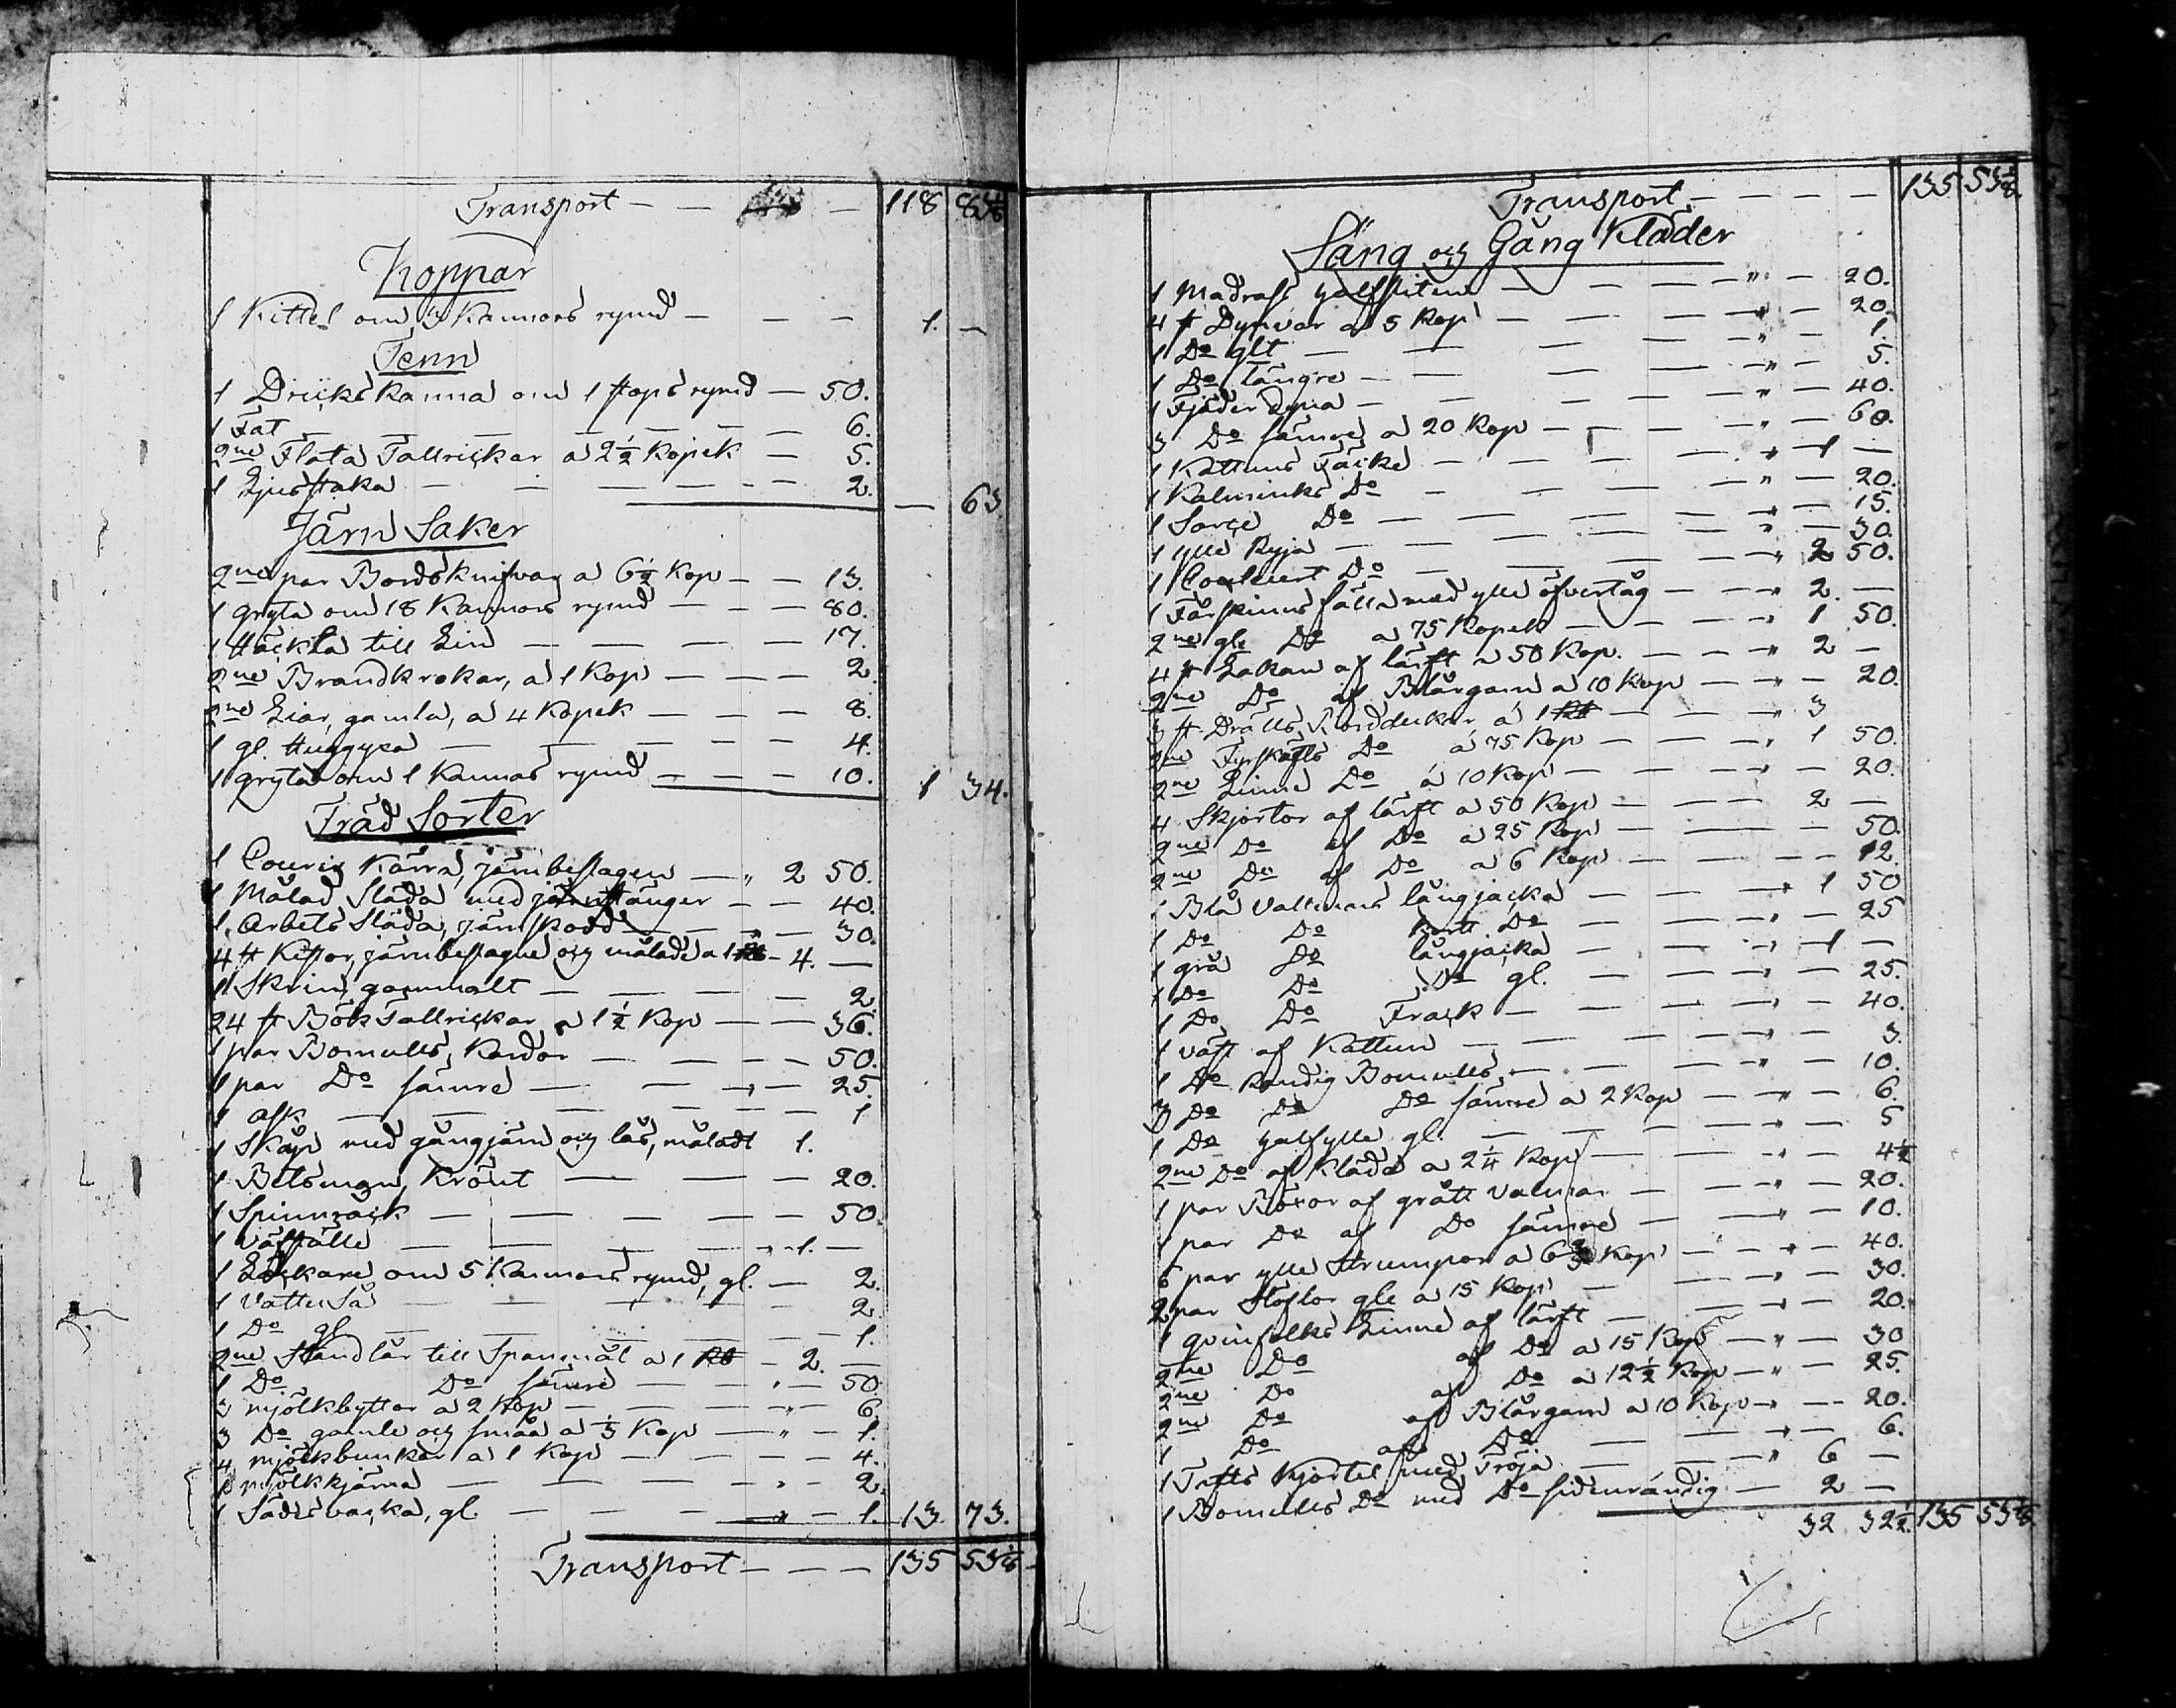 Transport — — — 118 83 1/8
Koppar
1 Kittel om 3 Kannors rymd — — — 1. —
Tenn
1 Dricks kanna om 1 stops rymd — 50.
1 Fat — — — — — — 6.
2ne Flata Tallrickar a 2 1/2 Kopek — 5.
1 Ljusstaka — — — — — 2. — 63.
Järn Saker
2ne par Bordsknifvar a 6 1/2 Kop — — 13.
1 gryta om 18 Kannors rymd — — — 80.
1 Häckla till Lin — — — — — 17.
2ne Brandkrokar, a 1 Kop — — — 2.
2ne Liar, gamla, a 4 Kopek — — — 8.
1 gl. Huggyxa — — — — — 4.
1 gryta om 1 Kannas rymd — — — 10. 1 34.
Träd Sorter
1 Courir Kärra, järnbeslagen — „ 2 50.
1 Målad Släda med järnstänger — — 40.
1 Arbets Släda, järnskodd — — — 30.
4 st Kistor, järnbeslagne och målade a 1 Rb — 4. —
1 Skrin, gammalt — — — — 2.
24 st Bök Tallrickar a 1 1/2 Kop — — 36.
1 par Bomulls Kardor — — — — 50.
1 par Do sämre — — „ — 25.
1 ask — — — — — — 1
1 Skåp med gångjärn och lås, måladt 1.
1 Betsman, Krönt — — — 20.
1 Spinnrack — — — — — 50
1 väfställe — — — — „ 1. —
1 Låckare om 5 Kannors rymd, gl. — 2.
1 Vattu Så — — — — — 2.
1 Do gl — — — — — — 1.
2ne Standlår till Spanmål a 1 Rb — 2. —
1 Do Do sämre — — „ — 50.
3 mjölkbyttor a 2 Kop — — — „ — 6.
3 Do gamla och små a 1/3 Kop — „ — 1.
4 mjölkbunkar a 1 Kop — — — — 4.
1 mjölkkjärna — — — — „ — 2.
1 Sädesvacka, gl. — — — — „ — 1. 13. 73.
Transport — — — 135 53 1/8
Transport — — — — 135 53 1/8.
Säng och Gång Kläder
1 Madrass halfsliten — — — — „ — 20.
4 st Dynvar a 5 Kop — — — — „ — 20.
1 Do glt — — — — — „ — 1.
1 Do längre — — — — — „ — 5.
1 Fjäder dyna — — — — — „ — 40.
3 Do sämre a 20 Kop — — — — „ — 60.
1 Kattuns Täcke — — — — „ 1 —
1 Kalminks Do — — — — „ — 20.
1 Sarce Do — — — — — „ — 15.
1 ylle Ryja — — — — — „ — 30.
1 Couleurt Do — — — — „ 2 50.
1 Fårskinns fäll med ylle öfvertåg — — „ 2. —
2ne gle Do a 75 Kopek — — — „ 1 50.
4 st Lakan af lärft a 50 Kop. — — „ 2 —
2ne Do af Blårgarn a 10 Kop — „ — 20.
3 st Dralls Borddukar a 1 Rb — — — „ 3
2ne Fyrskafts Do a 75 Kop — — — „ 1 50.
2ne Linne Do a 10 Kop — — — „ — 20.
4 Skjortor af lärft a 50 Kop — — — 2 —
2ne Do af Do a 25 Kop — — — 50.
2ne Do af Do a 6 Kop — — — — 12.
1 Blå Vallmans långjacka — — — „ 1 50
1 Do Do kort Do — — — „ — 25
1 grå Do långjacka — — — „ 1 —
1 Do Do Do gl. — — — „ — 25.
1 Do Do Frack — — — — „ — 40.
1 väst af Kattun — — — — „ — 3.
1 Do Randig Bomulls — — — — „ — 10.
3 Do Do Do sämre a 2 Kop — „ — 6.
1 Do halfylle gl. — — — — „ — 5
2ne Do af Kläde a 2 1/4 Kop — — — „ — 4 1/2
1 par Böxor af grått valmar — — „ — 20.
1 par Do af Do sämre — — „ — 10.
6 par ylle strumpor a 6 2/3 Kop — — „ — 40.
2 par Stöflor gle a 15 Kop — — — „ — 30.
1 qvinfolks Linne af lärft — — — „ — 20.
2ne Do af Do a 15 Kop — „ — 30
2ne Do af Do a 12 1/2 Kop — „ — 25.
2ne Do af Blårgarn a 10 Kop — „ — 20.
1 Do af Do — — „ — 6.
1 Tafts Kjortel med Tröja — — — „ 6 —
1 Bomulls Do med Do sidenrändig — 2 —
32 32 1/2. 135 53 1/8.